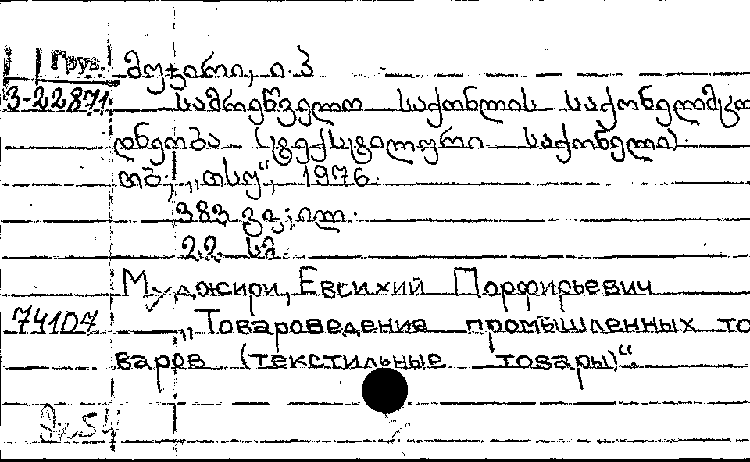 Груз. მუჯირი, ი.პ
3-22871 სამრეწველო საქონლის საქონელმცო
დნეობა (ტექსტილური საქონელი).
თბ., „თსუ“, 1976.
383 გვ; ილ.
22 სმ.
Муджири, Евсихий Порфирьевич
74107 „Товароведение промышленных то
варов (текстильные товары)“.